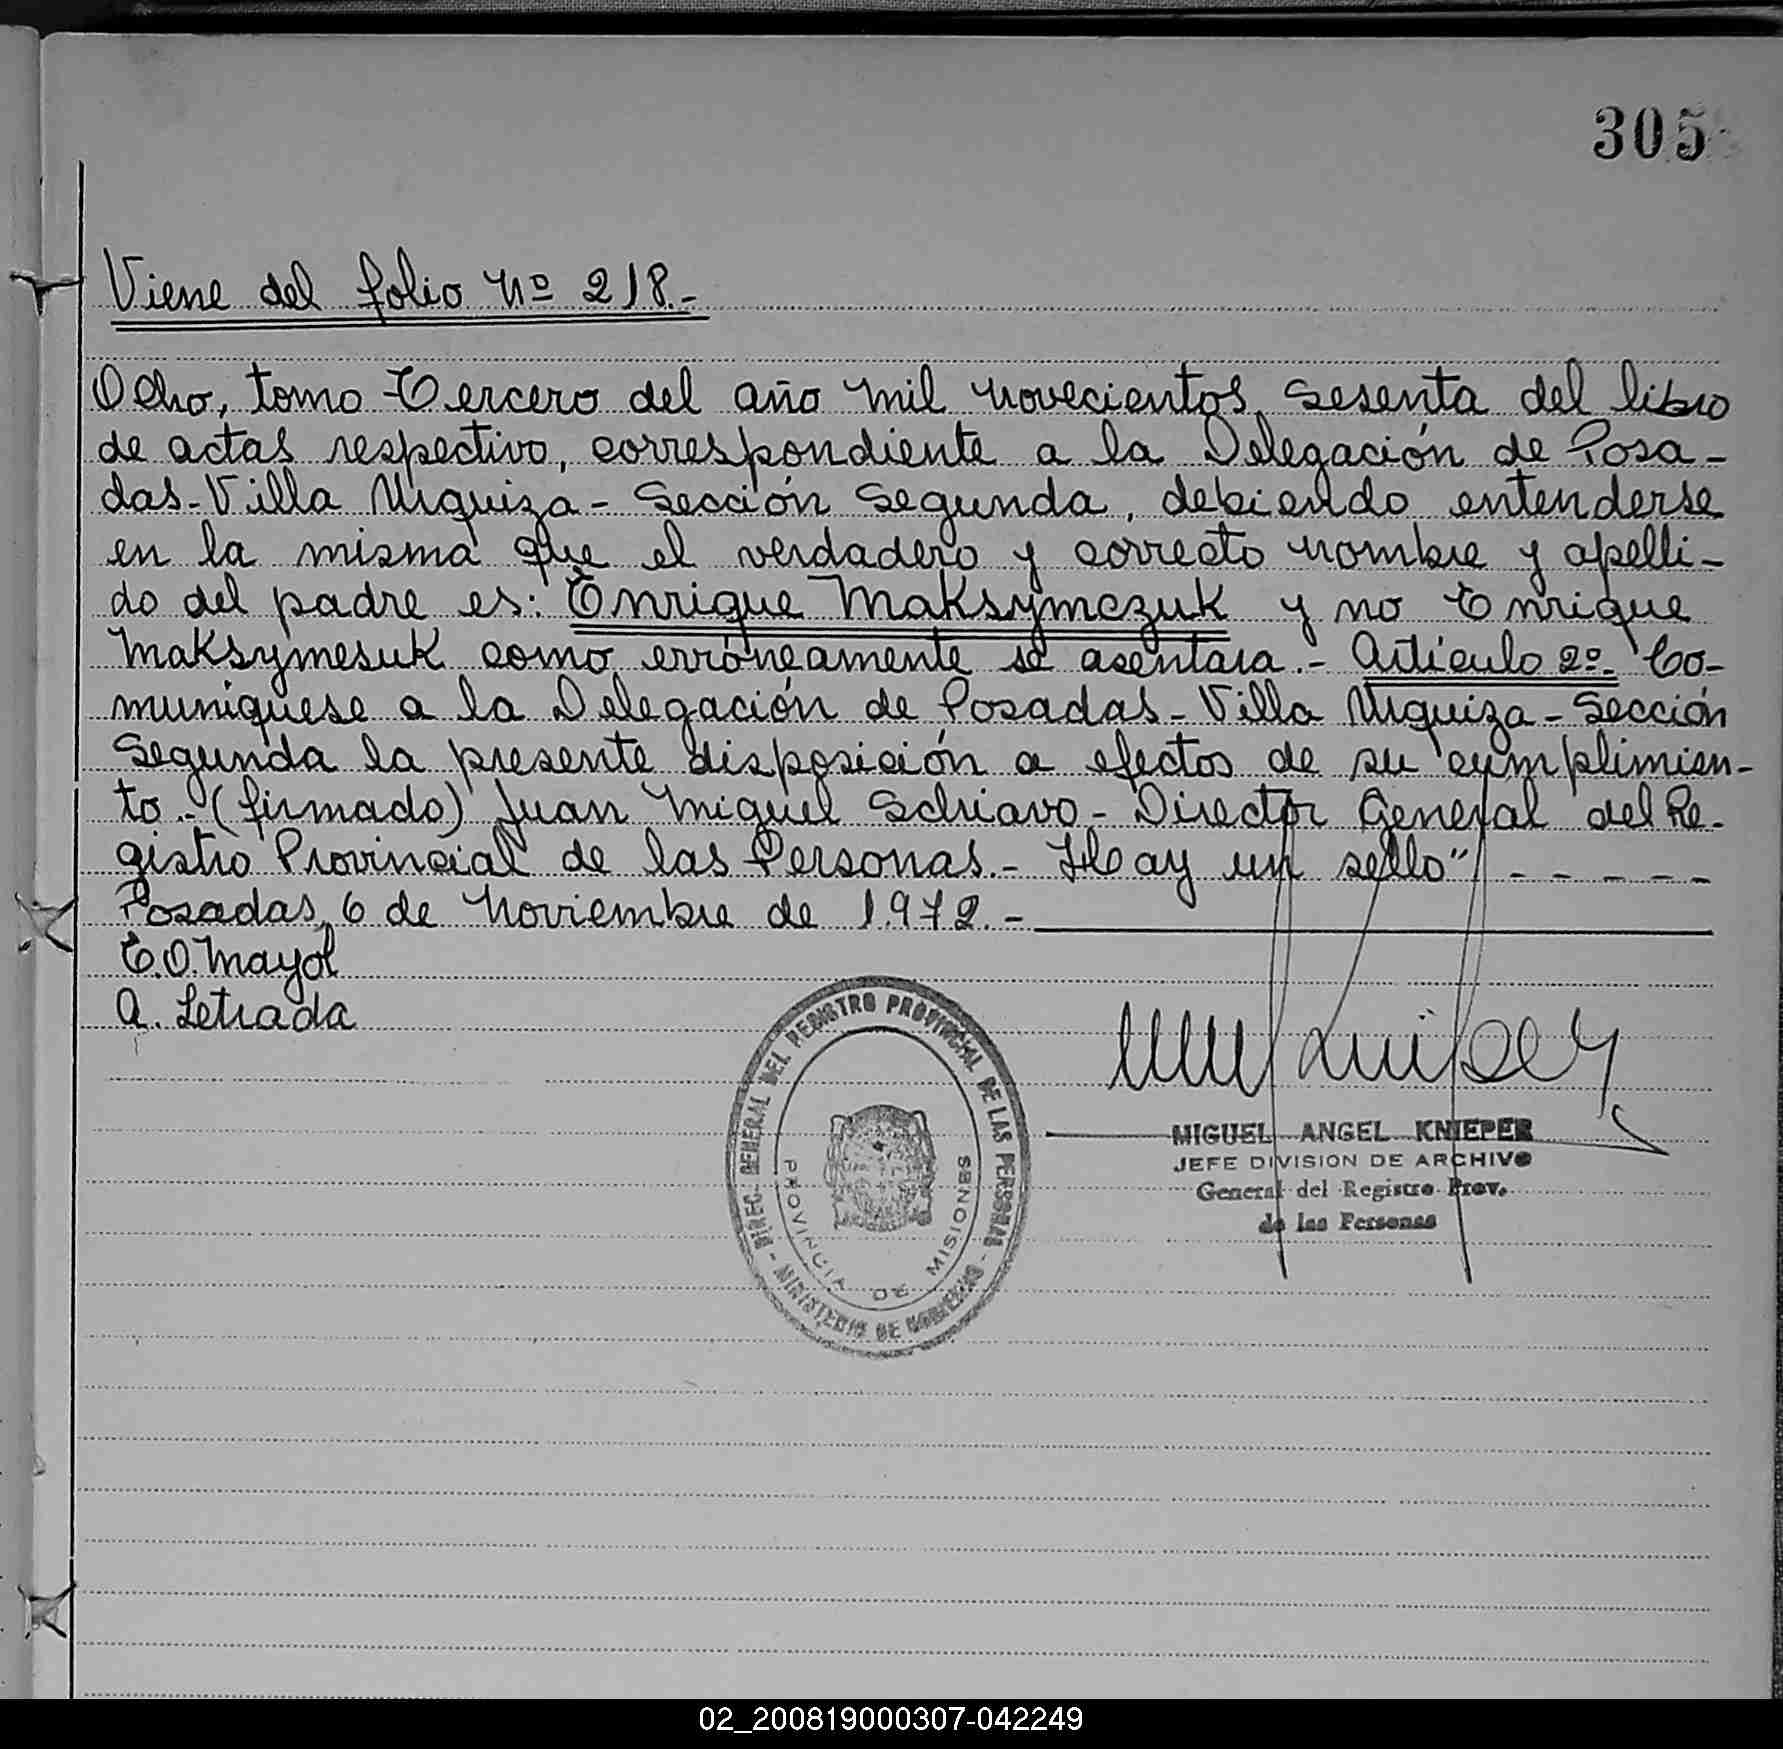 305
Viene del folio Nº 218.-
Ocho, tomo Tercero del año mil novecientos sesenta del libro
de actas respectivo, correspondiente a la Delegación de Posa-
das-Villa Urquiza-Sección Segunda, debiendo entenderse
en la misma que el verdadero y correcto nombre y apelli-
do del padre es: Enrique Maksymczuk y no Enrique
Maksymesuk como erróneamente se asentara.- Artículo 2º- Co-
muníquese a la Delegación de Posadas-Villa Urquiza-Sección
Segunda la presente disposición a efectos de su cumplimien-
to.-(firmado) Juan Miguel Schiavo-Director General del Re-
gistro Provincial de las Personas.- Hay un sello" - - - - -
Posadas, 6 de Noviembre de 1.972.-
E.O. Mayol
A. Letrada
DIREC. GENERAL DEL REGISTRO PROVINCIAL DE LAS PERSONAS - MINISTERIO DE GOBIERNO -
PROVINCIA DE MISIONES
MIGUEL ANGEL KNIEPER
JEFE DIVISION DE ARCHIVO
General del Registro Prov.
de las Personas
02_200819000307-042249